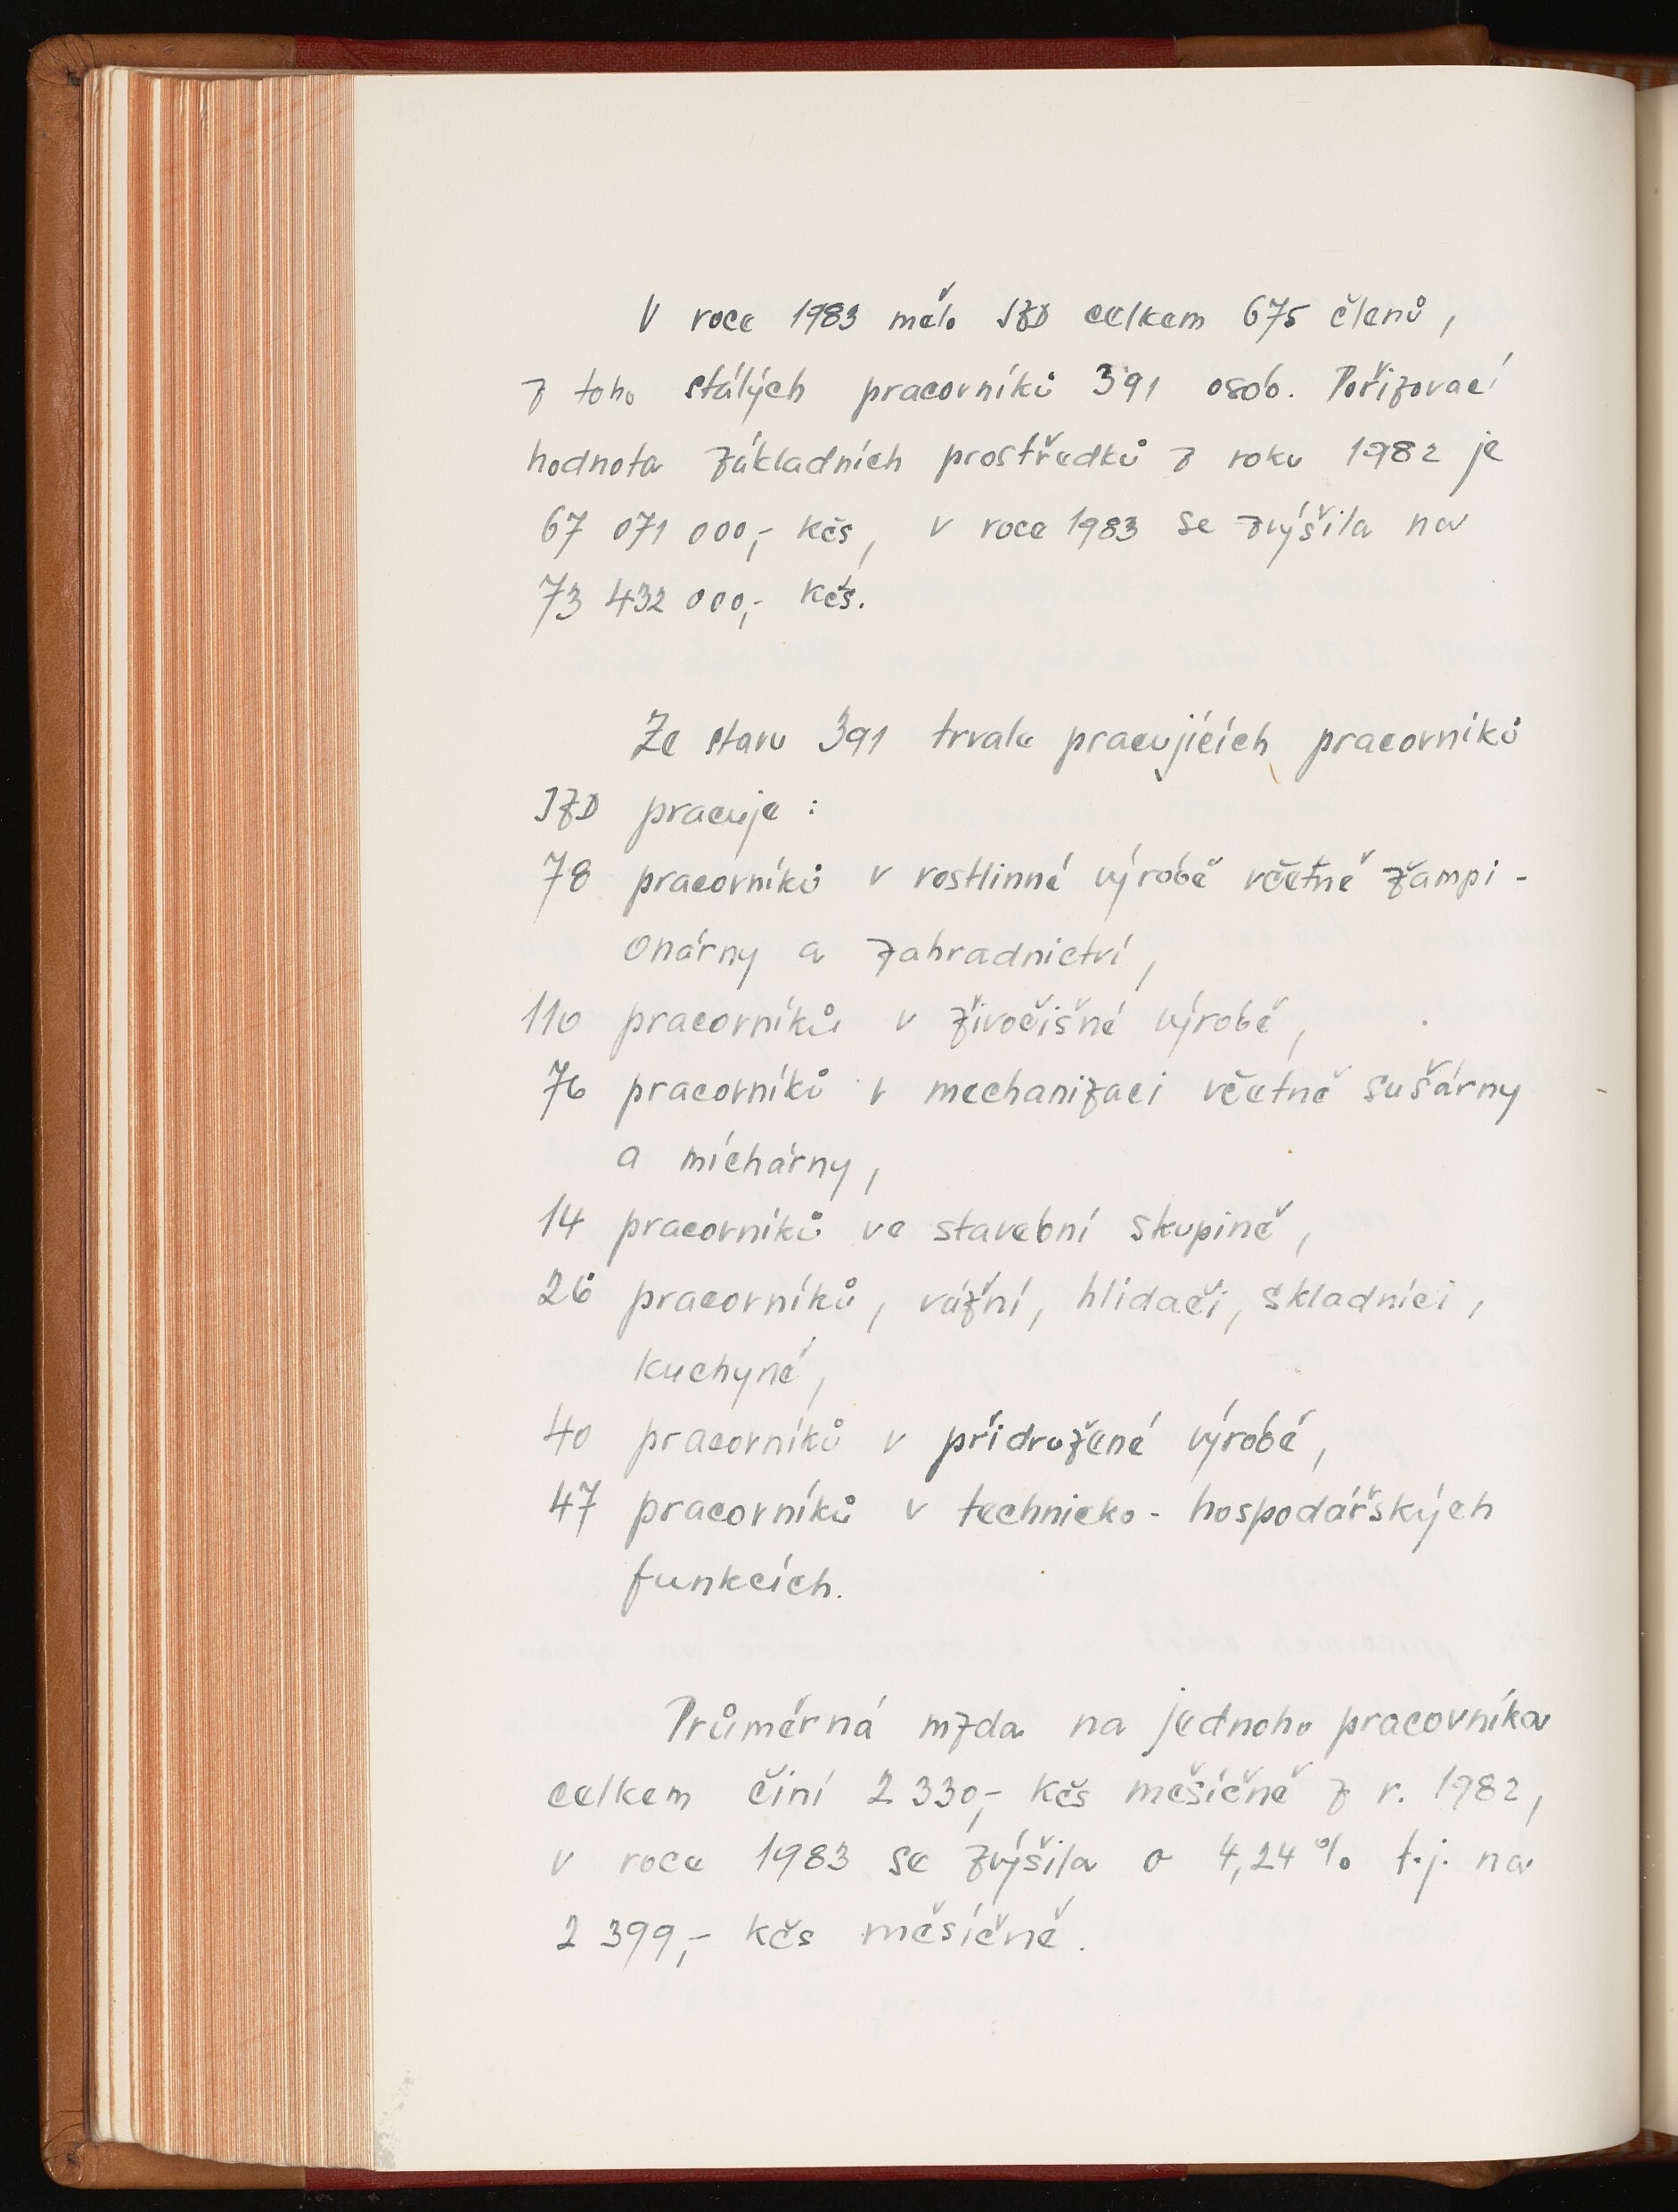 V roce 1983 mělo JZD celkem 675 členů,
z toho stálých pracovníků 391 osob. Pořizovací
hodnota základních prostředků z roku 1982 je
67 071 000,- Kčs, v roce 1983 se zvýšila na
73 432 000,- Kčs.
Ze stavu 391 trvale pracujících pracovníků
JZD pracuje :
78 pracovníků v rostlinné výrobě včetně žampi-
onárny a zahradnictví,
110 pracovníků v živočišné výrobě,
76 pracovníků v mechanizaci včetně sušárny
a míchárny,
14 pracovníků ve stavební skupině,
26 pracovníků, vážní, hlídači, skladníci,
kuchyně,
40 pracovníků v přidružené výrobě,
47 pracovníků v technicko - hospodářských
funkcích.
Průměrná mzda na jednoho pracovníka
celkem činí 2 330,- Kčs měšíčně z r. 1982,
v roce 1983 se zvýšila o 4,24 % t.j. na
2 399,- Kčs měsíčně.